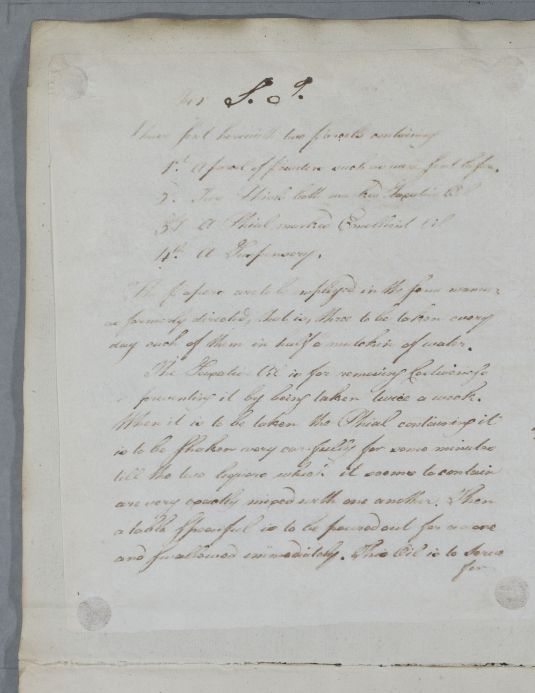 S. J.
I have sent herewith two parcels containing
1st A parcel of powders such as were sent before.
2. Two Phials both marked Hepatic Oil
3d A Phial marked Emollient Oil
4th A Suspensory.
The papers are to be employed in the same manner
as formerly directed, that is, three to be taken every
day each of them in half a mutchkin of water.
The Oil is for removing Costiveness or
preventing it by being taken twice a week.
When it is to be taken the Phial containing it
is to be shaken very carefully for some minutes
till the two liquors which it seems to contain
are very equally mixed with one another. Then
a table spoonful is to be poured out for a dose
and swallowed immediately. This Oil is to serve
for